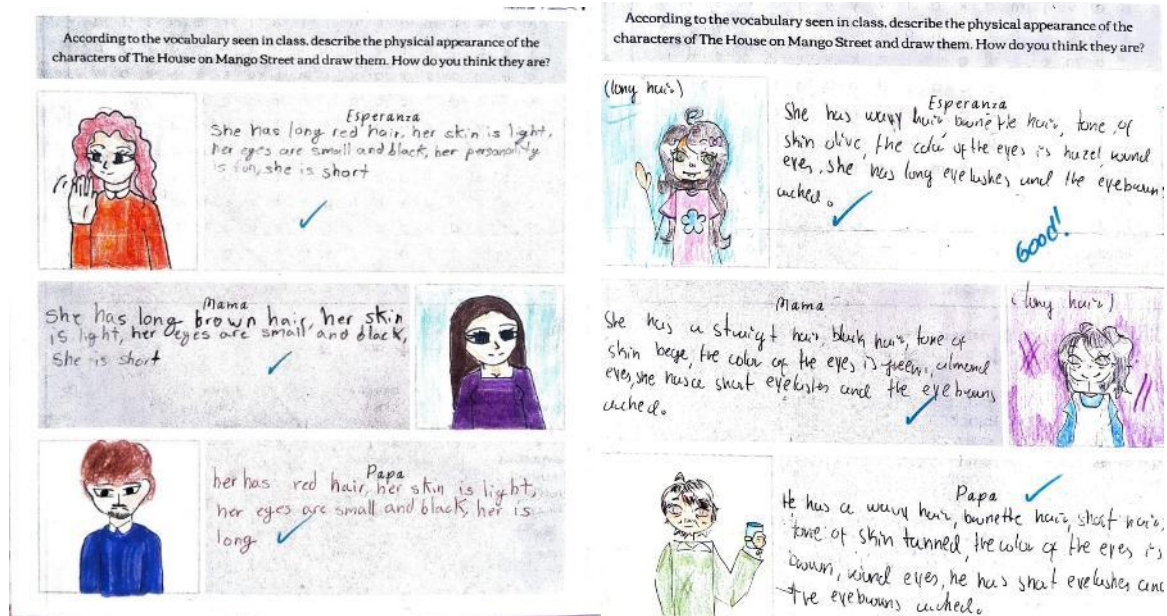 According to the vocabulary seen in class, describe the physical appearance of the
characters of The House on Mango Street and draw them. How do you think they are?
Esperanza
She has long red hair, her skin is light,
her eyes are small and black, her personality
is fun, she is short
Mama
she has long brown hair, her skin
is light, her eyes are small and black,
She is short
Papa
her has red hair, her skin is light,
her eyes are small and black, her is
long
According to the vocabulary seen in class, describe the physical appearance of the
characters of The House on Mango Street and draw them. How do you think they are?
(long hair)
Esperanza
She has wavy hair, hair, tone of
skin olive, the color of the eyes is hazel, round
eyes, she has long eyelashes and the
arched.
Good!
Mama
(long hair)
She has a hair, black hair, tone of
skin bege, the color of the eyes, is green, almond
eyes, she has a short eyelashes and the
arched.
Papa
He has a wavy hair, hair, short hair,
tone of skin tanned, the color of the eyes is
round eyes, he has short eyelashes and
the arched.